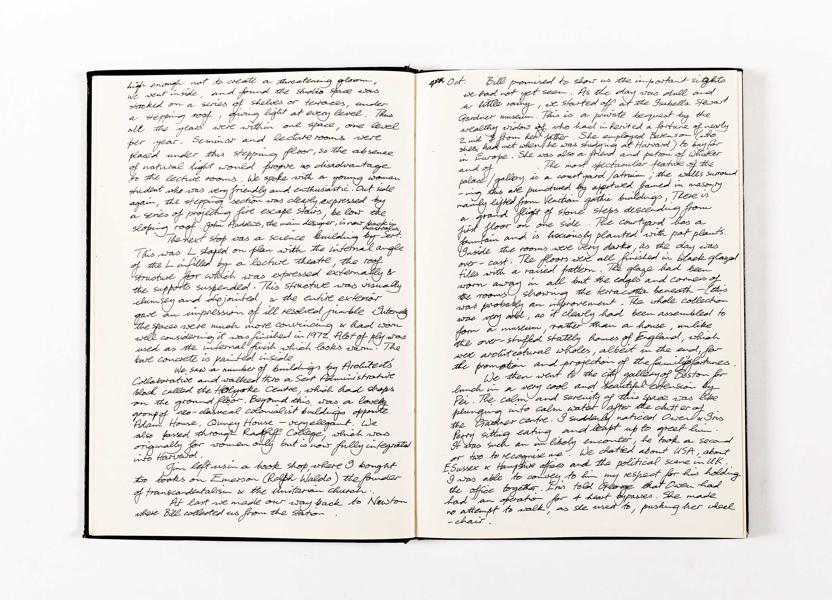 high enough not to create a threatening gloom,
We went inside, and found the studio space was
stacked on a series of shelves or terraces, under
a stepping roof, giving light at every level. Thus
all the years were within one space, one level
per year. Seminar and lecture rooms were
placed under this stepping floor, so the absence
of natural light would prove no disadvantage
to the lecture rooms. We spoke with a young woman
student who was very friendly and enthusiastic. Out side
again, the stepping section was clearly expressed by
a series of projecting fire escape stairs, below the
sloping roof. John Andrews, the main designer, is now back in
Australia
The next stop was a science building by Sert.
This was L shaped on plan with the internal angle
of the L infilled by a lecture theatre, the roof
structure for which was expressed externally &
the supports suspended. This structure was visually
clumsey and disjointed, & the entire exterior
gave an impression of ill resolved jumble. Internally
the spaces were much more convincing & had worn
well considering it was finished in 1972. A lot of ply was
used as the internal finish which looks warm. The
bare concrete is painted inside.
We saw a number of buildings by Architects
Collaborative and walked thro a Sert Administrative
block called the Holyoke Centre, which had shops
on the ground floor. Beyond this was a lovely
group of neo-classical colonialist buildings opposite
Adam House, Quincy House - very elegant. We
also passed through Radcliff College, which was
originally for women only but is now fully integrated
into Harvard.
Jim left us in a book shop, where I bought
two books on Emerson (Ralph Waldo) the founder
of transcendentalism & the Unitarian church.
At last we made our way back to Newton
where Bill collected us from the station.
4th Oct. Bill promised to show us the important sights
we had not yet seen. As the day was dull and
a little rainy, we started off at the Isabella Stewart
Gardner museum. This is a private bequest by the
wealthy widow of who had inherited a fortune of nearly
2 mill $ from her father. She employed Berenson (who
she had met when he was studying at Harvard) to buy for
in Europe. She was also a friend and patron of Whistler
and of . The most spectacular feature of the
palace/gallery is a court yard/atrium; the walls surround
-ing this are punctured by apertures framed in masonry
mainly lifted from Venetian gothic buildings, There is
a grand flight of stone steps descending from
first floor on one side. The courtyard has a
fountain and is luxuriously planted with pot plants.
Inside the rooms were very dark, as the day was
over-cast. The floors were all finished in black glazed
tiles with a raised pattern. The glaze had been
worn away in all but the edges and corners of
the rooms, showing the terracotta beneath - (this
was probably an improvement. The whole collection
was very odd, as it clearly had been assembled to
form a museum, rather than a house, unlike
the over stuffed stately homes of England, which
were architectural wholes, albeit in the end, for
the promotion and projection of the family fortunes.
We then went to the city gallery of Boston for
lunch in a very cool and beautiful extension by
Pei. The calm and serenity of this space was like
plunging into calm water after the clutter of
the Gardner centre. I suddenly noticed Owen & Iris
Perry sitting eating and leapt up to greet him.
It was such an unlikely encounter, he took a second
or two to recognise me. We chatted about USA, about
E Sussex & Hampshire offices and the political scene in UK.
I was able to convey to him my respect for his holding
the office together. Iris told George that Owen had
had an operation for 4 heart bypasses. She made
no attempt to walk, as she used to, pushing her wheel
-chair.